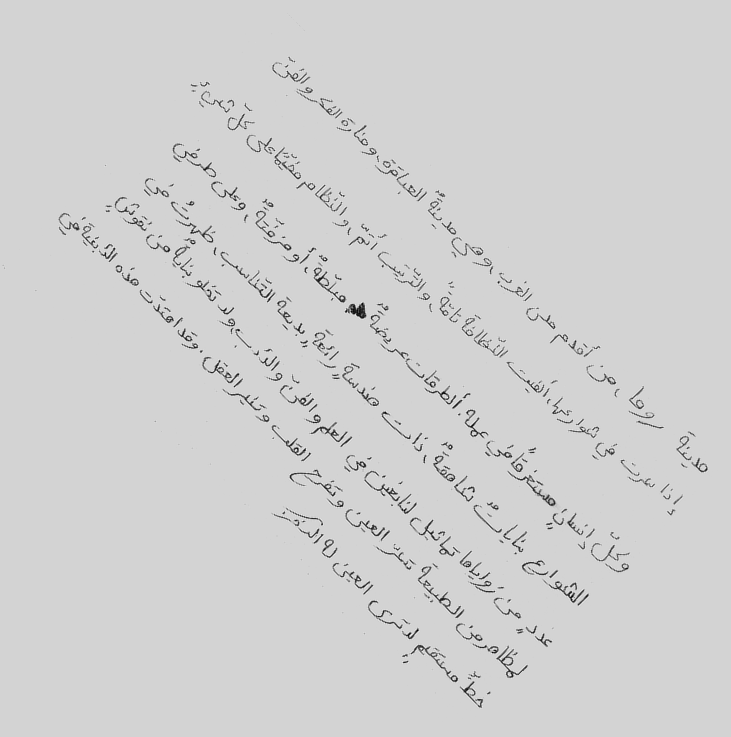 مدينة روما، من أقدم مدن الغرب، وهي مدينةُ العباقرة، ومنارة الفكر والفنّ
إذا سرت في شوارعها، ألفيت النّظافة تامّةً، والتّرتيب أتمّ، والنّظام مخيّمًا على كلّ شيءٍ
وكلّ إنسانٍ مستغرقًا في عمله. الطرقات عريضةٌ مبلّطةٌ، أو مزفّتةٌ، وعلى طرفي
الشوارع بناياتٌ شاهقةٌ، ذات هندسةٍ رائعةٍ بديعة التّناسب، ظهرتْ في
عددٍ من زواياها تماثيل لنابغين في العلم والفنّ والأدب، ولا تخلو بنايةٌ من نقوشٍ
لمظاهر من الطبيعة تسرّ العين وتفرح القلب وتنير العقل. وقد امتدّت هذه الأبنية في
خطٍّ مستقيمٍ لا ترى العين له